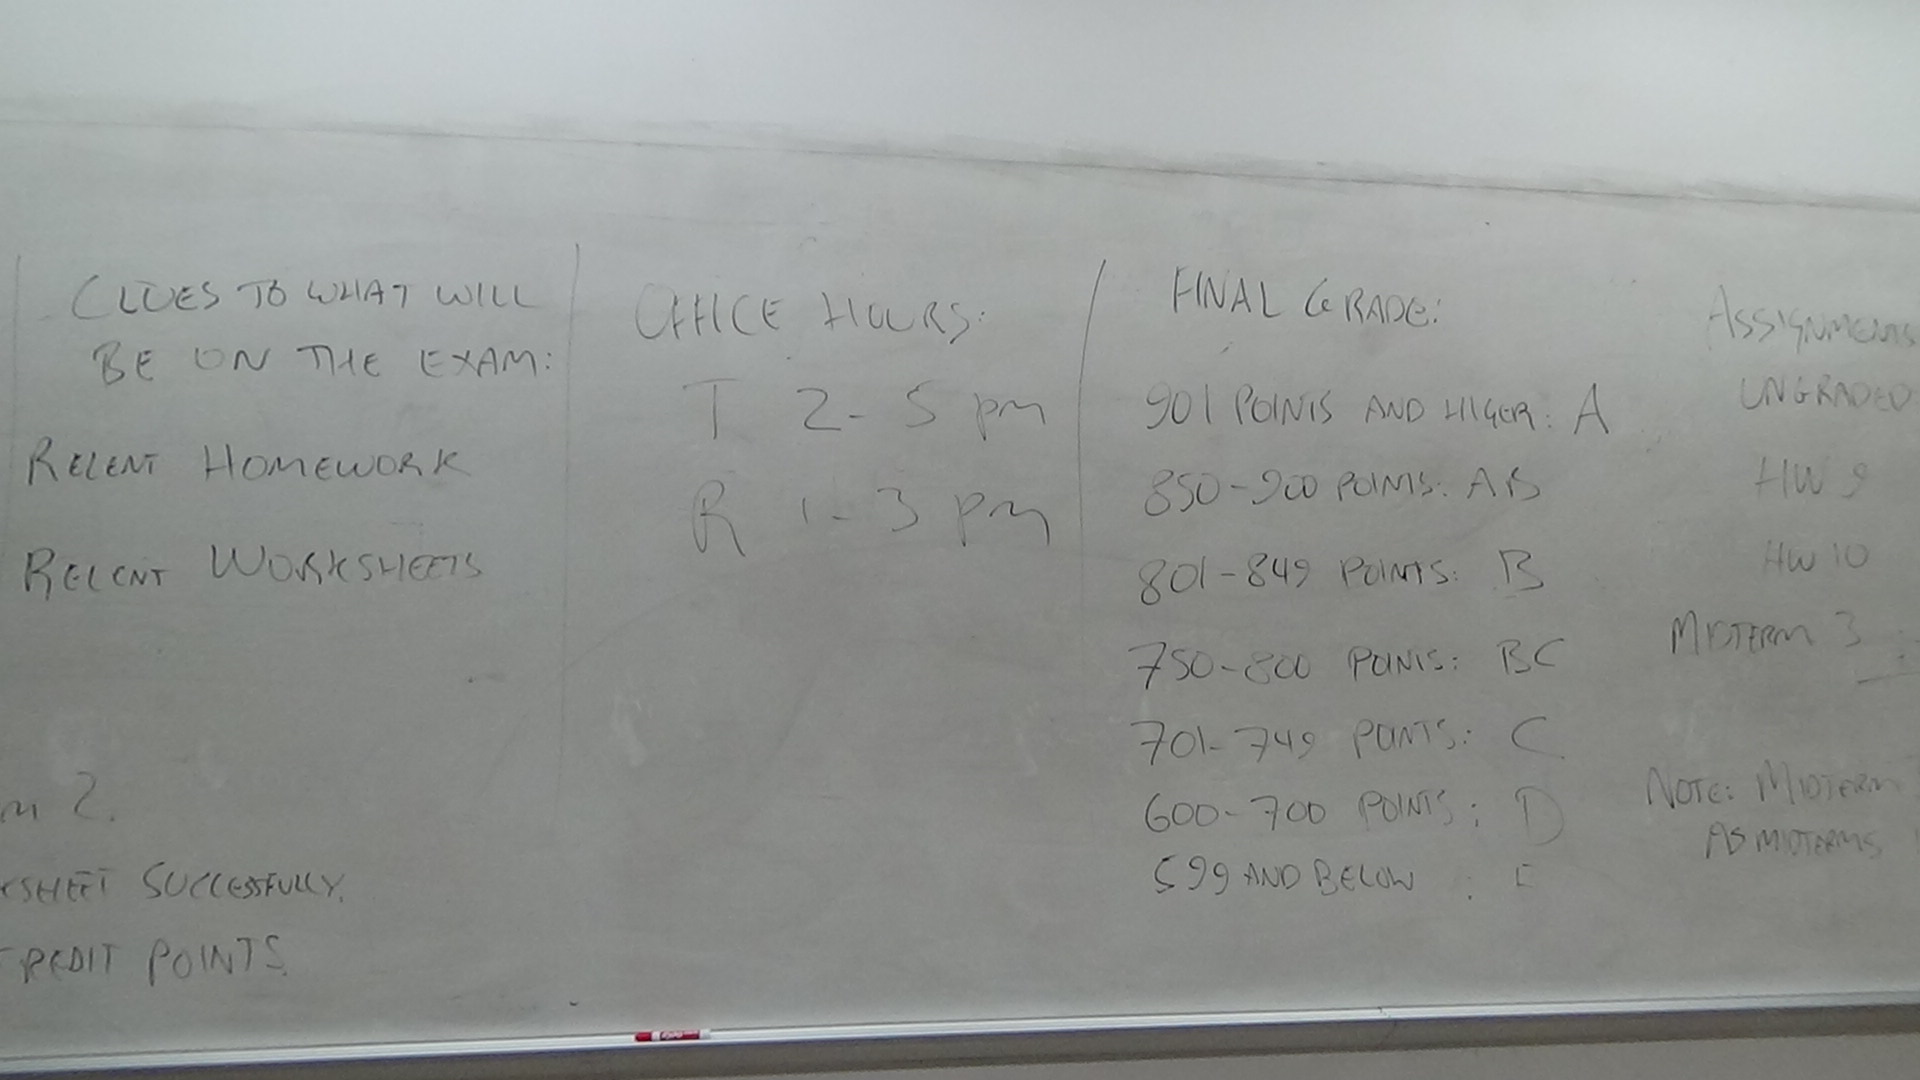 CLUES TO WHAT WILL
BE ON THE EXAM:
RECENT HOMEWORK
RECENT WORKSHEETS
2.
SUCCESSFULLY.
CREDIT POINTS.
OFFICE HOURS:
T 2-5 pm
R 1-3 pm
FINAL GRADE:
901 POINTS AND HIGER: A
850-900 POINTS: AB
801-849 POINTS: B
750-800 POINTS: BC
701-749 POINTS: C
600-700 POINTS: D
599 AND BELOW :
ASSIGNMENTS
UNGRADED
HW 9
HW 10
MIDTERM 3
NOTE: MIDTERM
AS MIDTERMS